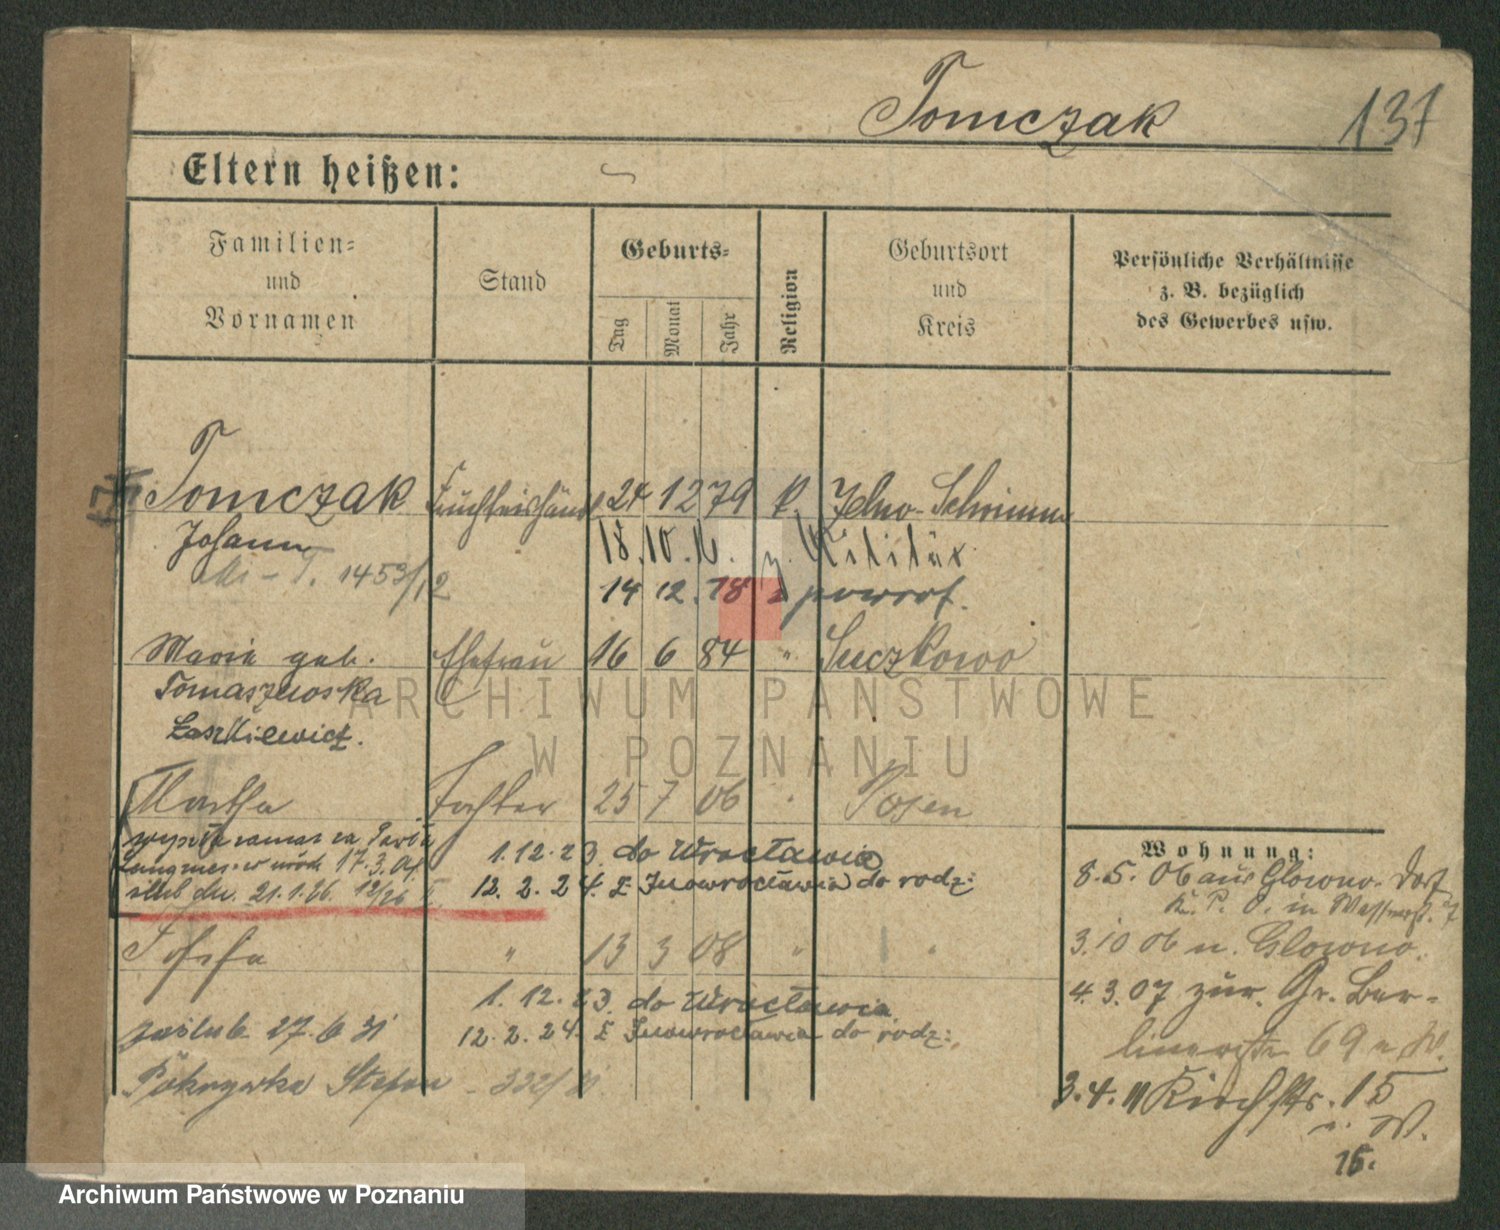 Tomczak 137
Eltern heißen:
Familien= und Vornamen
Stand
Geburts=
Tag
Monat
Jahr
Religion
Geburtsort und Kreis
Persönliche Verhältnisse
z. B. bezüglich
des Gewerbes usw.
Tomczak 24 12 79 k.
Johann 18. 10. z. Militär
1453/12 14 12. 18 z powrot.
Maria geb. Ehefrau 16 6 84 " Suczkowo
Tomaszewska
Laskiewicz.
Martha Tochter 25 7 06 Posen
1. 12. 23. do Wrocławia
17. 3. 01.
ślub dn. 21. 1. 26. 12/26 12. 2. 24. z Inowrocławia do rodz:
Josefa " 13 3 08 " "
1. 12. 23. do Wrocławia
zaślub. 27. 6 31 12. 2. 24. z Inowrocławia do rodz:
Stefan - 332/31
Wohnung:
8. 5. 06 aus Glowno. Dorf
3. 10 06 n. Glowno.
4. 3. 07 zur. Gr. Ber-
linerstr 69 a W.
3. 4. 11 Kirchstr. 15
W.
15.
ARCHIWUM PAŃSTWOWE
W POZNANIU
Archiwum Państwowe w Poznaniu